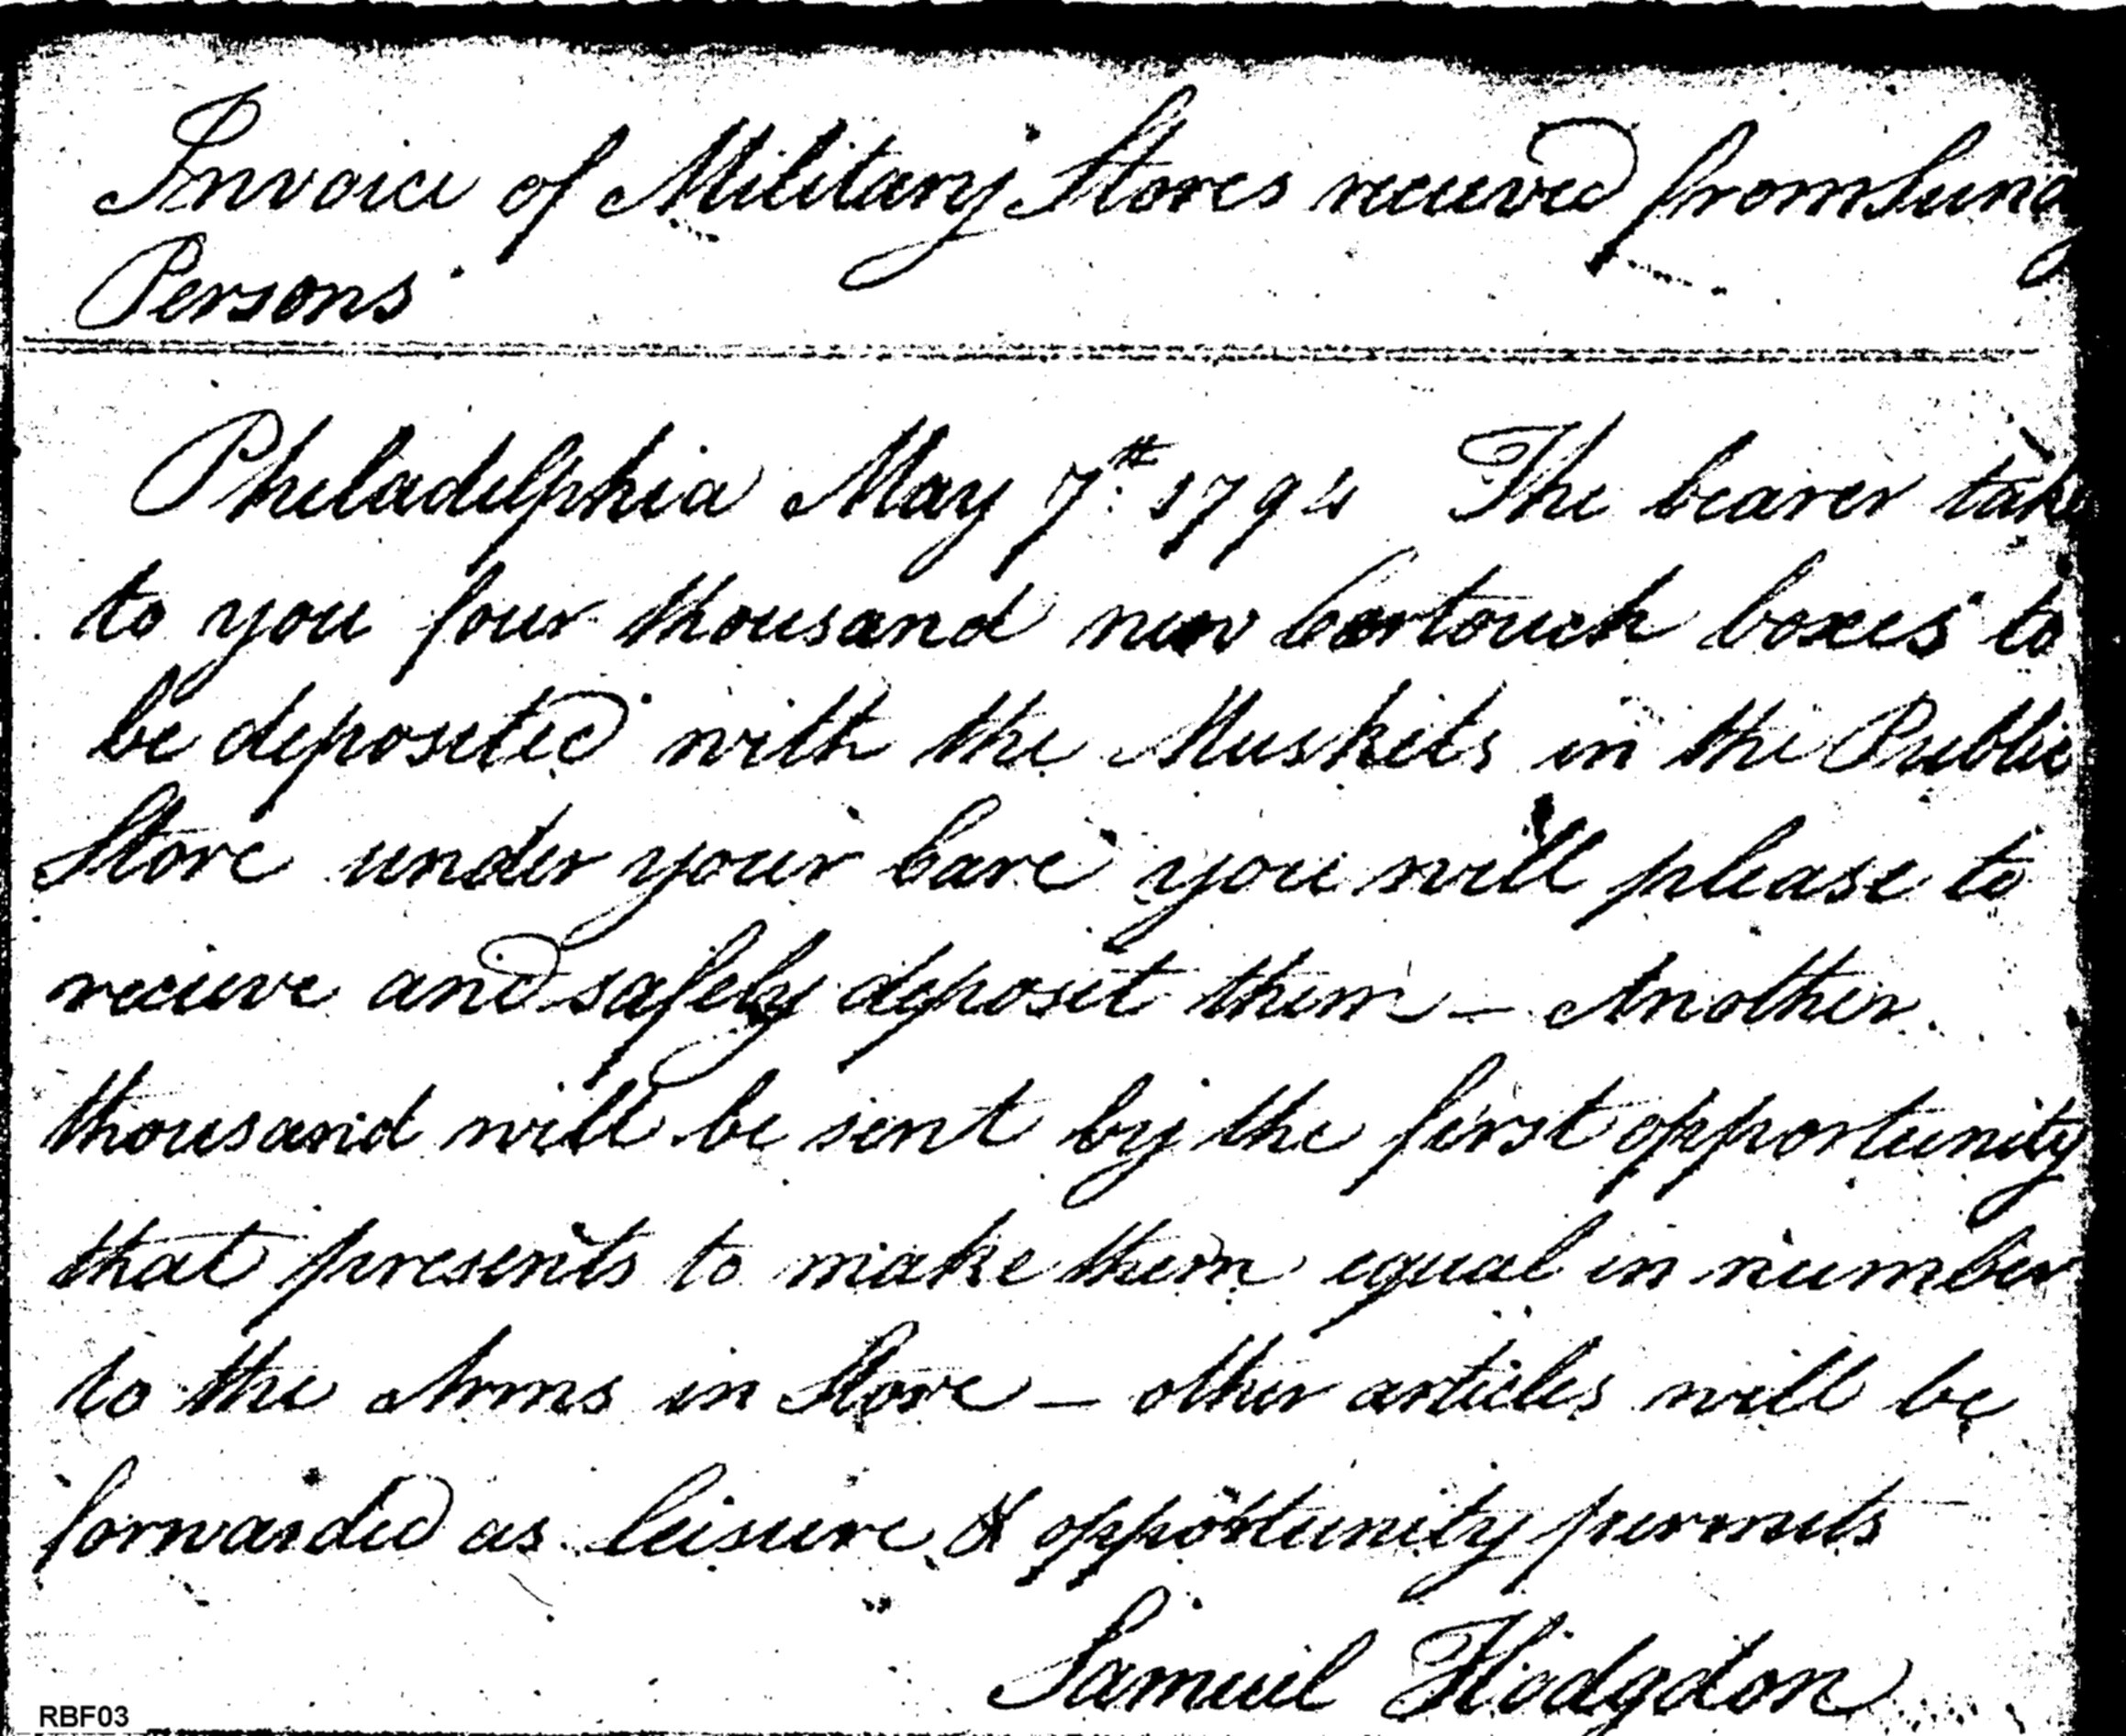 Invoice of Military Stores recieved from Sundy
Persons
Philadelphia May 7th 1794 The bearer takes
to you four thousand new Cartouch boxes to
be deposited with the Muskets in the Public
Store under your Care you will please to
recieve and safely deposit them – Another
thousand will be sent by the first opportunity
that presents to make them equal in number
to the Arms in Store – other articles will be
forwarded as leisure & opportunity permits
Samuel Hodgdon
RBF03